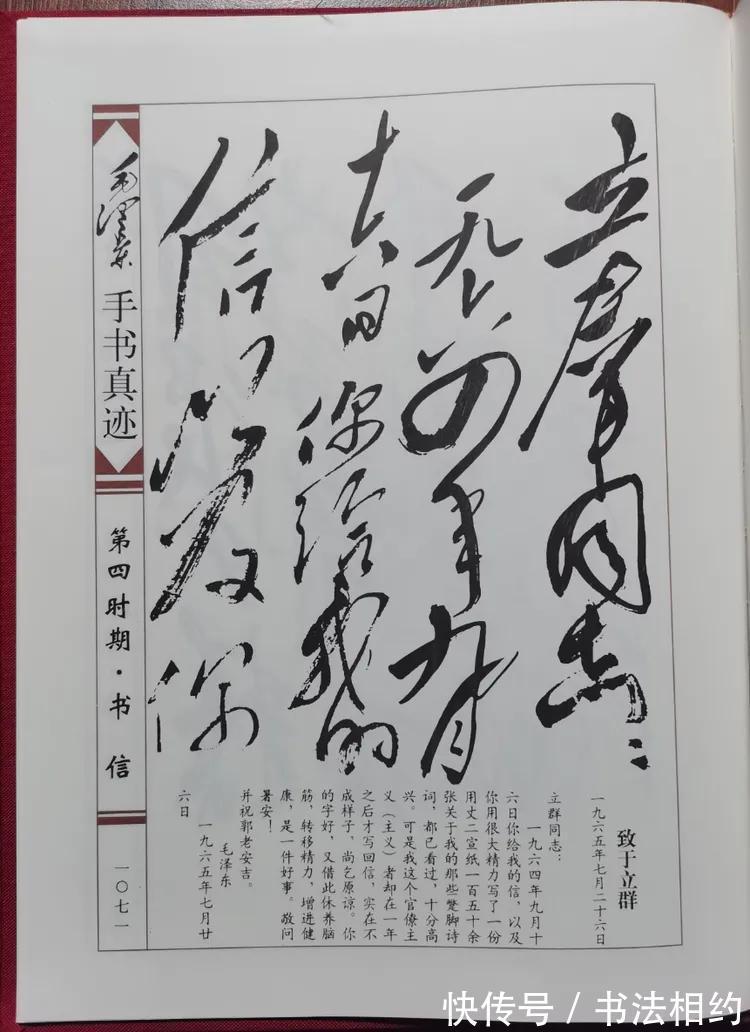 立群同志：
一九六四年九月
十六日你给我的
信以及你
致于立群
一九六五年七月二十六日
立群同志：
一九六四年九月十
六日你给我的信，以及
你用很大精力写了一份
用丈二宣纸一百五十余
张关于我的那些蹩脚诗
词，都已看过，十分高
兴。可是我这个官僚主
义（主义）者却在一年
之后才写回信，实在不
成样子，尚乞原谅。你
的字好，又借此休养脑
筋，转移精力，增进健
康，是一件好事。敬问
暑安！
并祝郭老安吉。
毛泽东
一九六五年七月廿
六日
毛泽东
手书真迹
第四时期·书信
一〇七一
快传号 / 书法相约